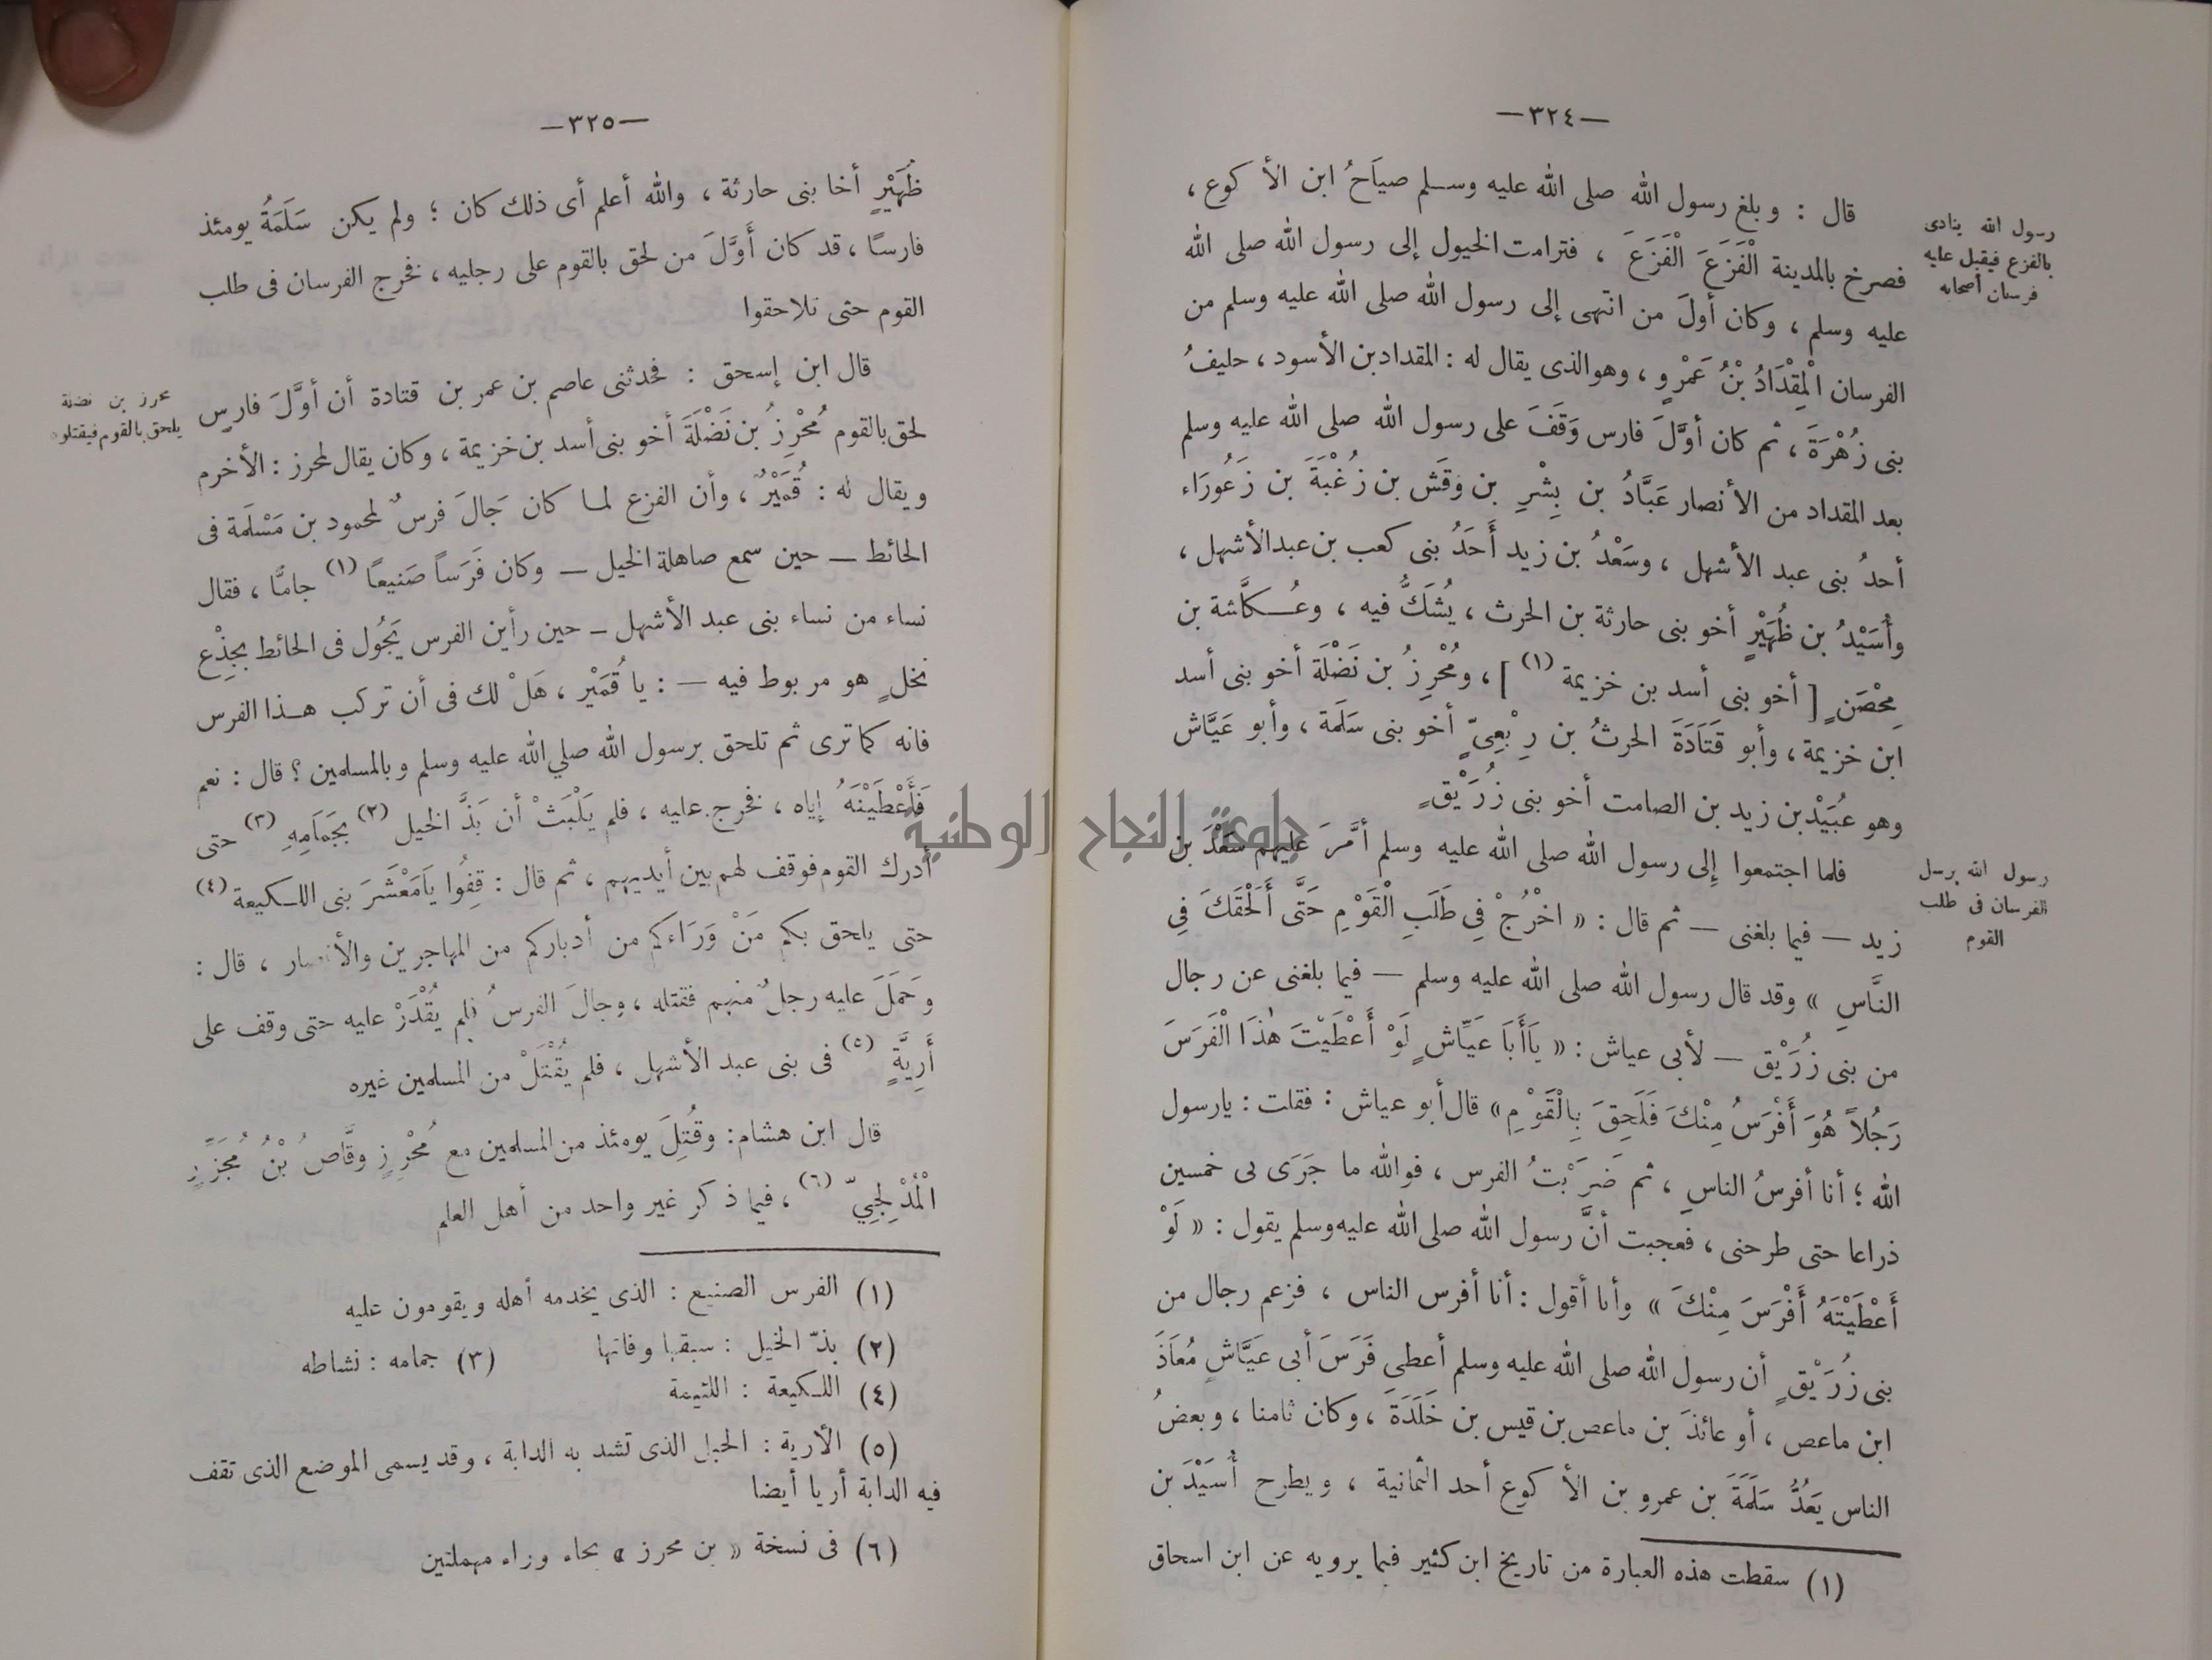 —٣٢٤—
قال : وبلغ رسول الله صلى الله عليه وسلم صياَحُ ابن الأكوع ،
فصرخ بالمدينة الْفَزَعَ الْفَزَعَ ، فترامت الخيول إلى رسول الله صلى الله
عليه وسلم ، وكان أولَ من انتهى إلى رسول الله صلى الله عليه وسلم من
الفرسان الْمِقْدَادُ بْنُ عَمْرٍو ، وهو الذى يقال له : المقداد بن الأسود ، حليفُ
بنى زُهْرَةَ ، ثم كان أوَّلَ فارس وَقَفَ على رسول الله صلى الله عليه وسلم
بعد المقداد من الأنصار عَبَّادُ بن بِشْرِ بن وَقَش بن زُغْبَةَ بن زَعُورَاء
أحدُ بنى عبد الأشهل ، وسَعْدُ بن زيد أَحَدُ بنى كعب بن عبد الأشهل ،
وأُسَيْدُ بن ظُهَيْرٍ أخو بنى حارثة بن الحرث ، يُشَكُّ فيه ، وعُكَّاشة بن
مِحْصَنٍ [ أخو بنى أسد بن خزيمة (١) ] ، ومُحْرِزُ بن نَضْلَة أخو بنى أسد
ابن خزيمة ، وأبو قَتَادَةَ الحرثُ بن رِبْعِىّ أخو بنى سَلَمة ، وأبو عَيَّاش
وهو عُبَيْد بن زيد بن الصامت أخو بنى زُرَيْقٍ
فلما اجتمعوا إلى رسول الله صلى الله عليه وسلم أمَّرَ عليهم سَعْدَ بن
زيد — فيما بلغنى — ثم قال : « اخْرُجْ فِي طَلَبِ الْقَوْمِ حَتَّى أَلْحَقَكَ فِي
النَّاسِ » وقد قال رسول الله صلى الله عليه وسلم — فيما بلغنى عن رجال
من بنى زُرَيْق — لأبى عياش : « يَاأَبَا عَيَّاشٍ لَوْ أَعْطَيْتَ هٰذَا الْفَرَسَ
رَجُلاً هُوَ أَفْرَسُ مِنْكَ فَلَحِقَ بِالْقَوْمِ » قال أبو عياش : فقلت : يارسول
الله ؛ أنا أفرسُ الناسِ ، ثم ضَرَبْتُ الفرس ، فوالله ما جَرَى بى خمسين
ذراعا حتى طرحنى ، فعجبت أنَّ رسول الله صلى الله عليه وسلم يقول : « لَوْ
أَعْطَيْتَهُ أَفْرَسَ مِنْكَ » وأنا أقول : أنا أفرس الناس ، فزعم رجال من
بنى زُرَيْقٍ أن رسول الله صلى الله عليه وسلم أعطى فَرَسَ أبى عَيَّاشٍ مُعَاذَ
ابن ماعص ، أو عائذَ بن ماعص بن قيس بن خَلَدَةَ ، وكان ثامنا ، وبعضُ
الناس يَعُدُّ سَلَمَةَ بن عمرو بن الأكوع أحد الثمانية ، ويطرح أُسَيْدَ بن
(١) سقطت هذه العبارة من تاريخ ابن كثير فيما يرويه عن ابن اسحاق
رسول الله ينادى
بالفزع فيقبل عليه
فرسان أصحابه
رسول الله يرسل
الفرسان فى طلب
القوم
—٣٢٥—
ظُهَيْرٍ أخا بنى حارثة ، والله أعلم أى ذلك كان ؛ ولم يكن سَلَمَةُ يومئذ
فارسًا ، قد كان أَوَّلَ من لحق بالقوم على رجليه ، فخرج الفرسان فى طلب
القوم حتى تلاحقوا
قال ابن إسحق : فحدثنى عاصم بن عمر بن قتادة أن أوَّلَ فارسٍ
لحق بالقوم مُحْرِزُ بن نَضْلَةَ أخو بنى أسد بن خزيمة ، وكان يقال لمحرز : الأخرم
ويقال له : قُمَيْرٌ ، وأن الفزع لما كان جَالَ فرسٌ لمحمود بن مَسْلَمة فى
الحائط — حين سمع صاهلة الخيل — وكان فَرَساً صَنيعًا (١) جامًّا ، فقال
نساء من نساء بنى عبد الأشهل — حين رأين الفرس يَجُول فى الحائط بجِذْعِ
نخلٍ هو مربوط فيه — : يا قُمَيْر ، هَلْ لك فى أن تركب هذا الفرس
فانه كما ترى ثم تلحق برسول الله صلي الله عليه وسلم وبالمسلمين ؟ قال : نعم
فَأَعْطَيْنَهُ إياه ، فخرج عليه ، فلم يَلْبَثْ أن بَذَّ الخيل (٢) بجَمَامِهِ (٣) حتى
أدرك القوم فوقف لهم بين أيديهم ، ثم قال : قِفُوا يَامَعْشَرَ بنى اللكيعة (٤)
حتى يلحق بكم مَنْ وَرَاءَكم من أدباركم من المهاجرين والأنصار ، قال :
وَحَمَلَ عليه رجلٌ منهم فقتله ، وجالَ الفرسُ فلم يُقْدَرْ عليه حتى وقف على
أَرِيَّةٍ (٥) فى بنى عبد الأشهل ، فلم يُقْتَلْ من المسلمين غيره
قال ابن هشام : وقُتِلَ يومئذ من المسلمين مع مُحْرِزٍ وقَّاصُ بْنُ مُجَزِّزٍ
الْمُدْلِجِيّ (٦) ، فيما ذكر غير واحد من أهل العلم
(١) الفرس الصنيع : الذى يخدمه أهله ويقومون عليه
(٢) بذّ الخيل : سبقها وفاتها (٣) جمامه : نشاطه
(٤) اللكيعة : اللئيمة
(٥) الأرية : الحبل الذى تشد به الدابة ، وقد يسمى الموضع الذى تقف
فيه الدابة أريا أيضا
(٦) فى نسخة « بن محرز » بحاء وراء مهملتين
محرز بن نضلة
يلحق بالقوم فيقتلونه
جامعة النجاح الوطنية